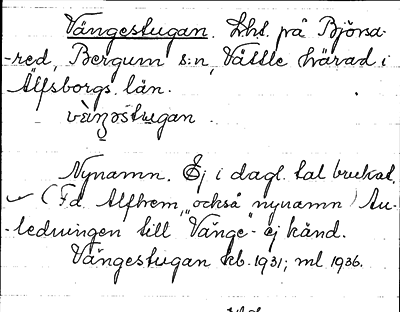 Vängestugan. Lht. på Björsa-
-red, Bergum s:n, Vättle härad i
Älfsborgs län.
vèŋəstugan.
Nynamn. Ej i dagl. tal brukat.
(Fd. Alfhem, också nynamn) An-
-ledningen till "Vänge"- ej känd.
Vängestugan kb. 1931; ml 1936.